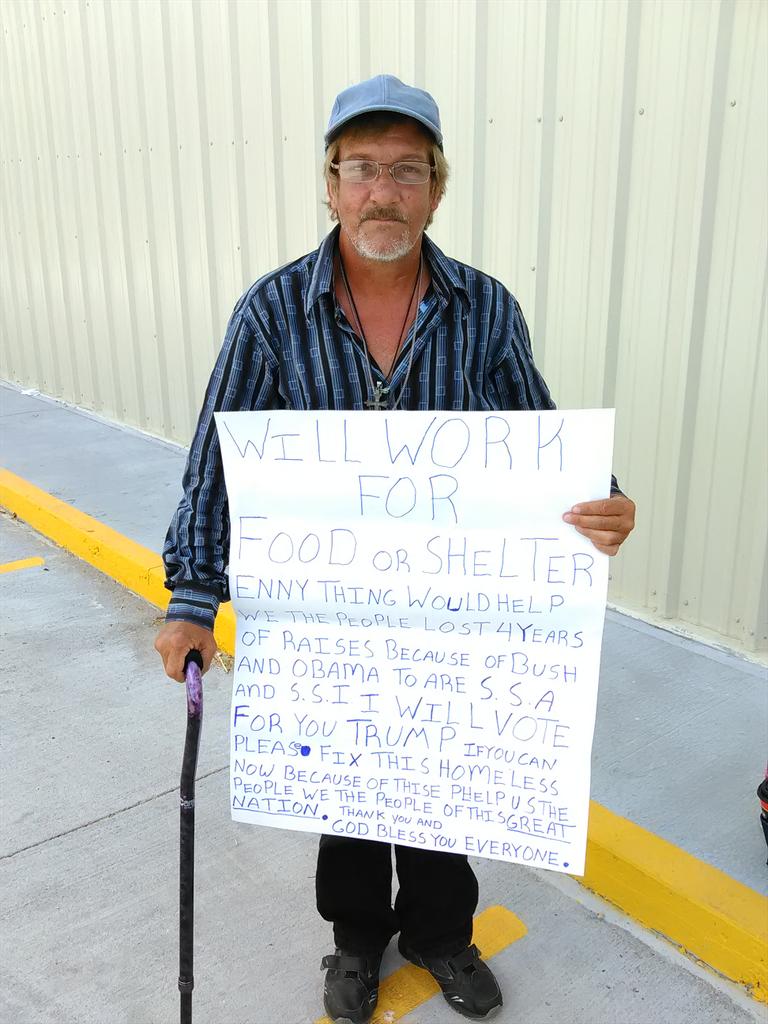 WILL WORK
FOR
FOOD OR SHELTER
ENNY THING WOULD HELP
WE THE PEOPLE LOST 4 YEARS
OF RAISES BECAUSE OF BUSH
AND OBAMA TO ARE S.S.A
AND S.S.I I WILL VOTE
FOR YOU TRUMP IF YOU CAN
PLEAS FIX THIS HOMELESS
NOW BECAUSE OF THISE PHELP US THE
PEOPLE WE THE PEOPLE OF THIS GREAT
NATION. THANK YOU AND
GOD BLESS YOU EVERYONE.